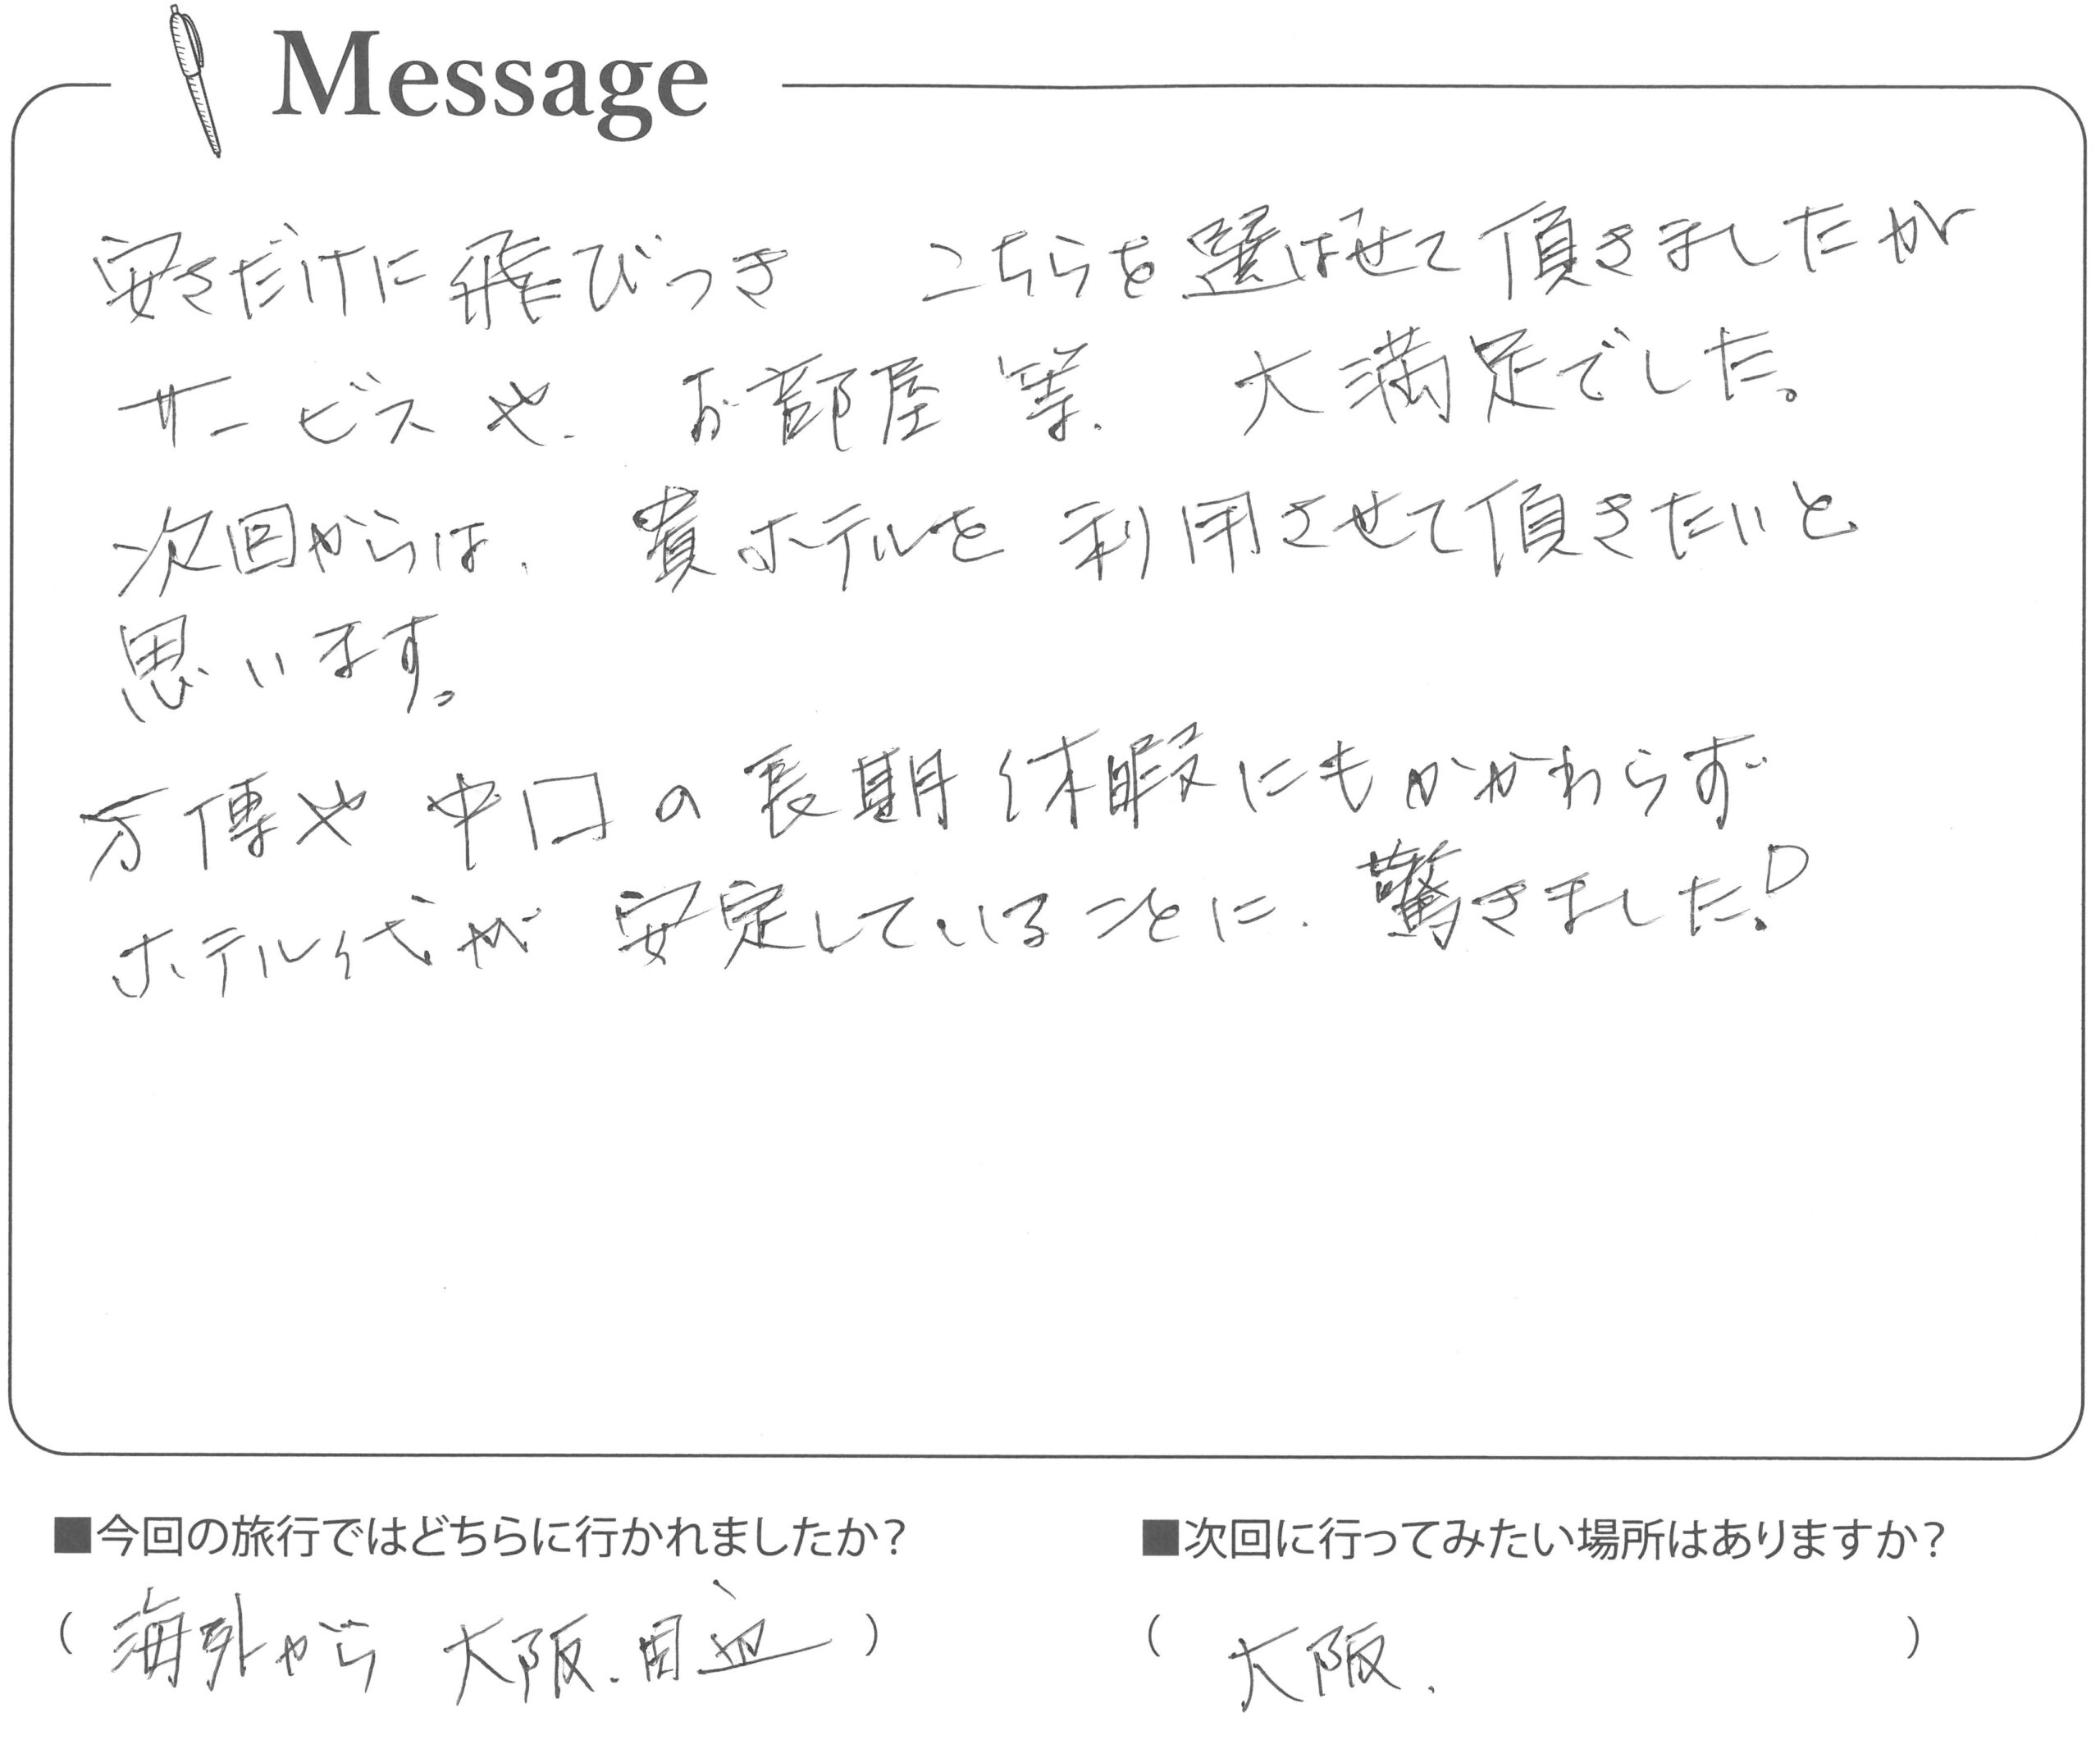 Message
安さだけに飛びつき こちらを選ばせて頂きましたが
サービスや、お部屋等、大満足でした。
次回からは、貴ホテルを利用させて頂きたいと
思います。
万博や中口の長期休暇にもかかわらず
ホテル代が安定していることに、驚きました!
■今回の旅行ではどちらに行かれましたか? ■次回に行ってみたい場所はありますか?
(海外から 大阪、周辺) (大阪、)